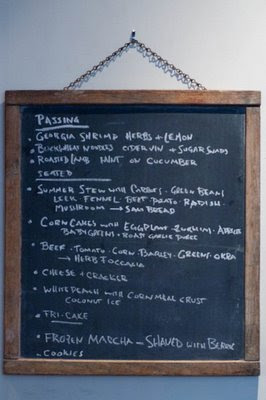 PASSING
• GEORGIA SHRIMP HERBS + LEMON
• BUCKWHEAT NOODLES CIDER VIN + SUGAR SNAPS
• ROASTED LAMB MINT ON CUCUMBER
SEATED
• SUMMER STEW WITH CARROTS - GREEN BEAN
LEEK - FENNEL - BEET - POTATO - RADISH -
MUSHROOM → BREAD
• CORN CAKES WITH EGGPLANT - ZUCHINI -
BABY GREENS + ROAST GARLIC
• BEEF - TOMATO - CORN - BARLEY - GREENS - OKRA
→ HERB FOCCACIA
• CHEESE + CRACKER
• WHITE PEACH WITH CORNMEAL CRUST
COCONUT ICE
• FRI-CAKE
• FROZEN MATCHA - SHAVED WITH
COOKIES